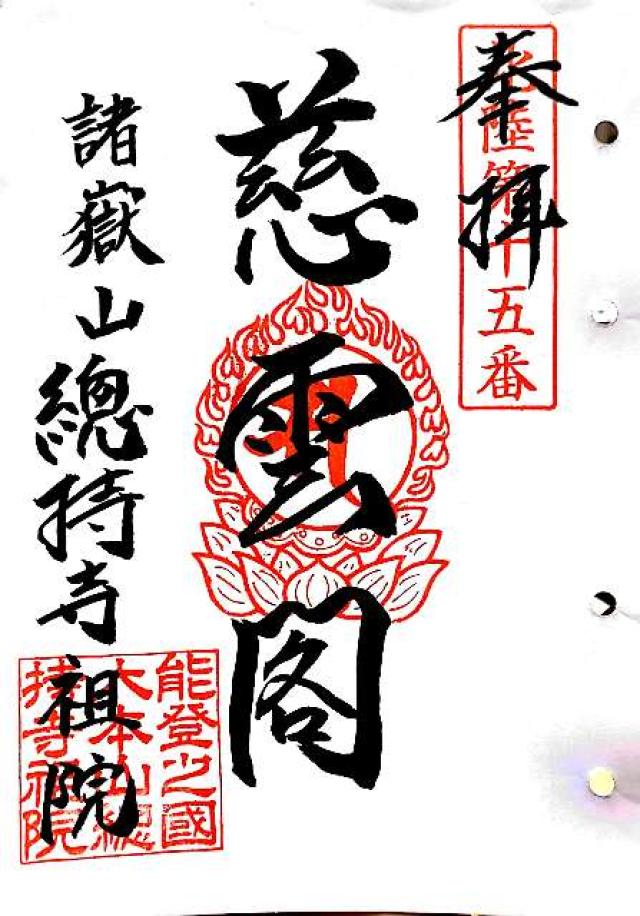 奉拝
北陸第十五番
慈雲閣
諸嶽山總持寺祖院
能登之國
大本山總
持寺祖院